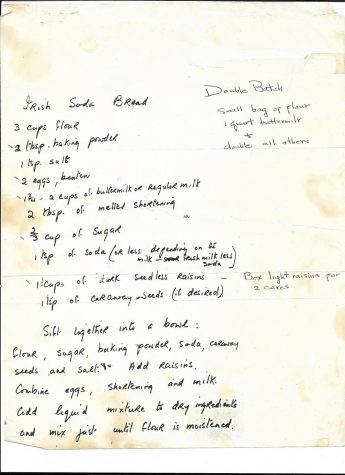 Irish Soda Bread
Double Batch
small bag of flour
1 quart buttermilk
+
double all others
3 cups flour
2 tbsp. baking powder
1 tsp. salt
2 eggs, beaten
1 3/4 - 2 cups of buttermilk or regular milk
2 tbsp. of melted shortening
2/3 cup of Sugar
1 tsp of soda (or less depending on
milk - fresh milk less)
soda
1 1/2 cups of dark seedless raisins - Box light raisins per
2 cakes
1 tsp of caraway seeds (if desired)
Sift together into a bowl:
flour, sugar, baking powder, soda, caraway
seeds and salt. Add raisins.
Combine eggs, shortening and milk.
Add liquid mixture to dry ingredients
and mix just until flour is moistened.